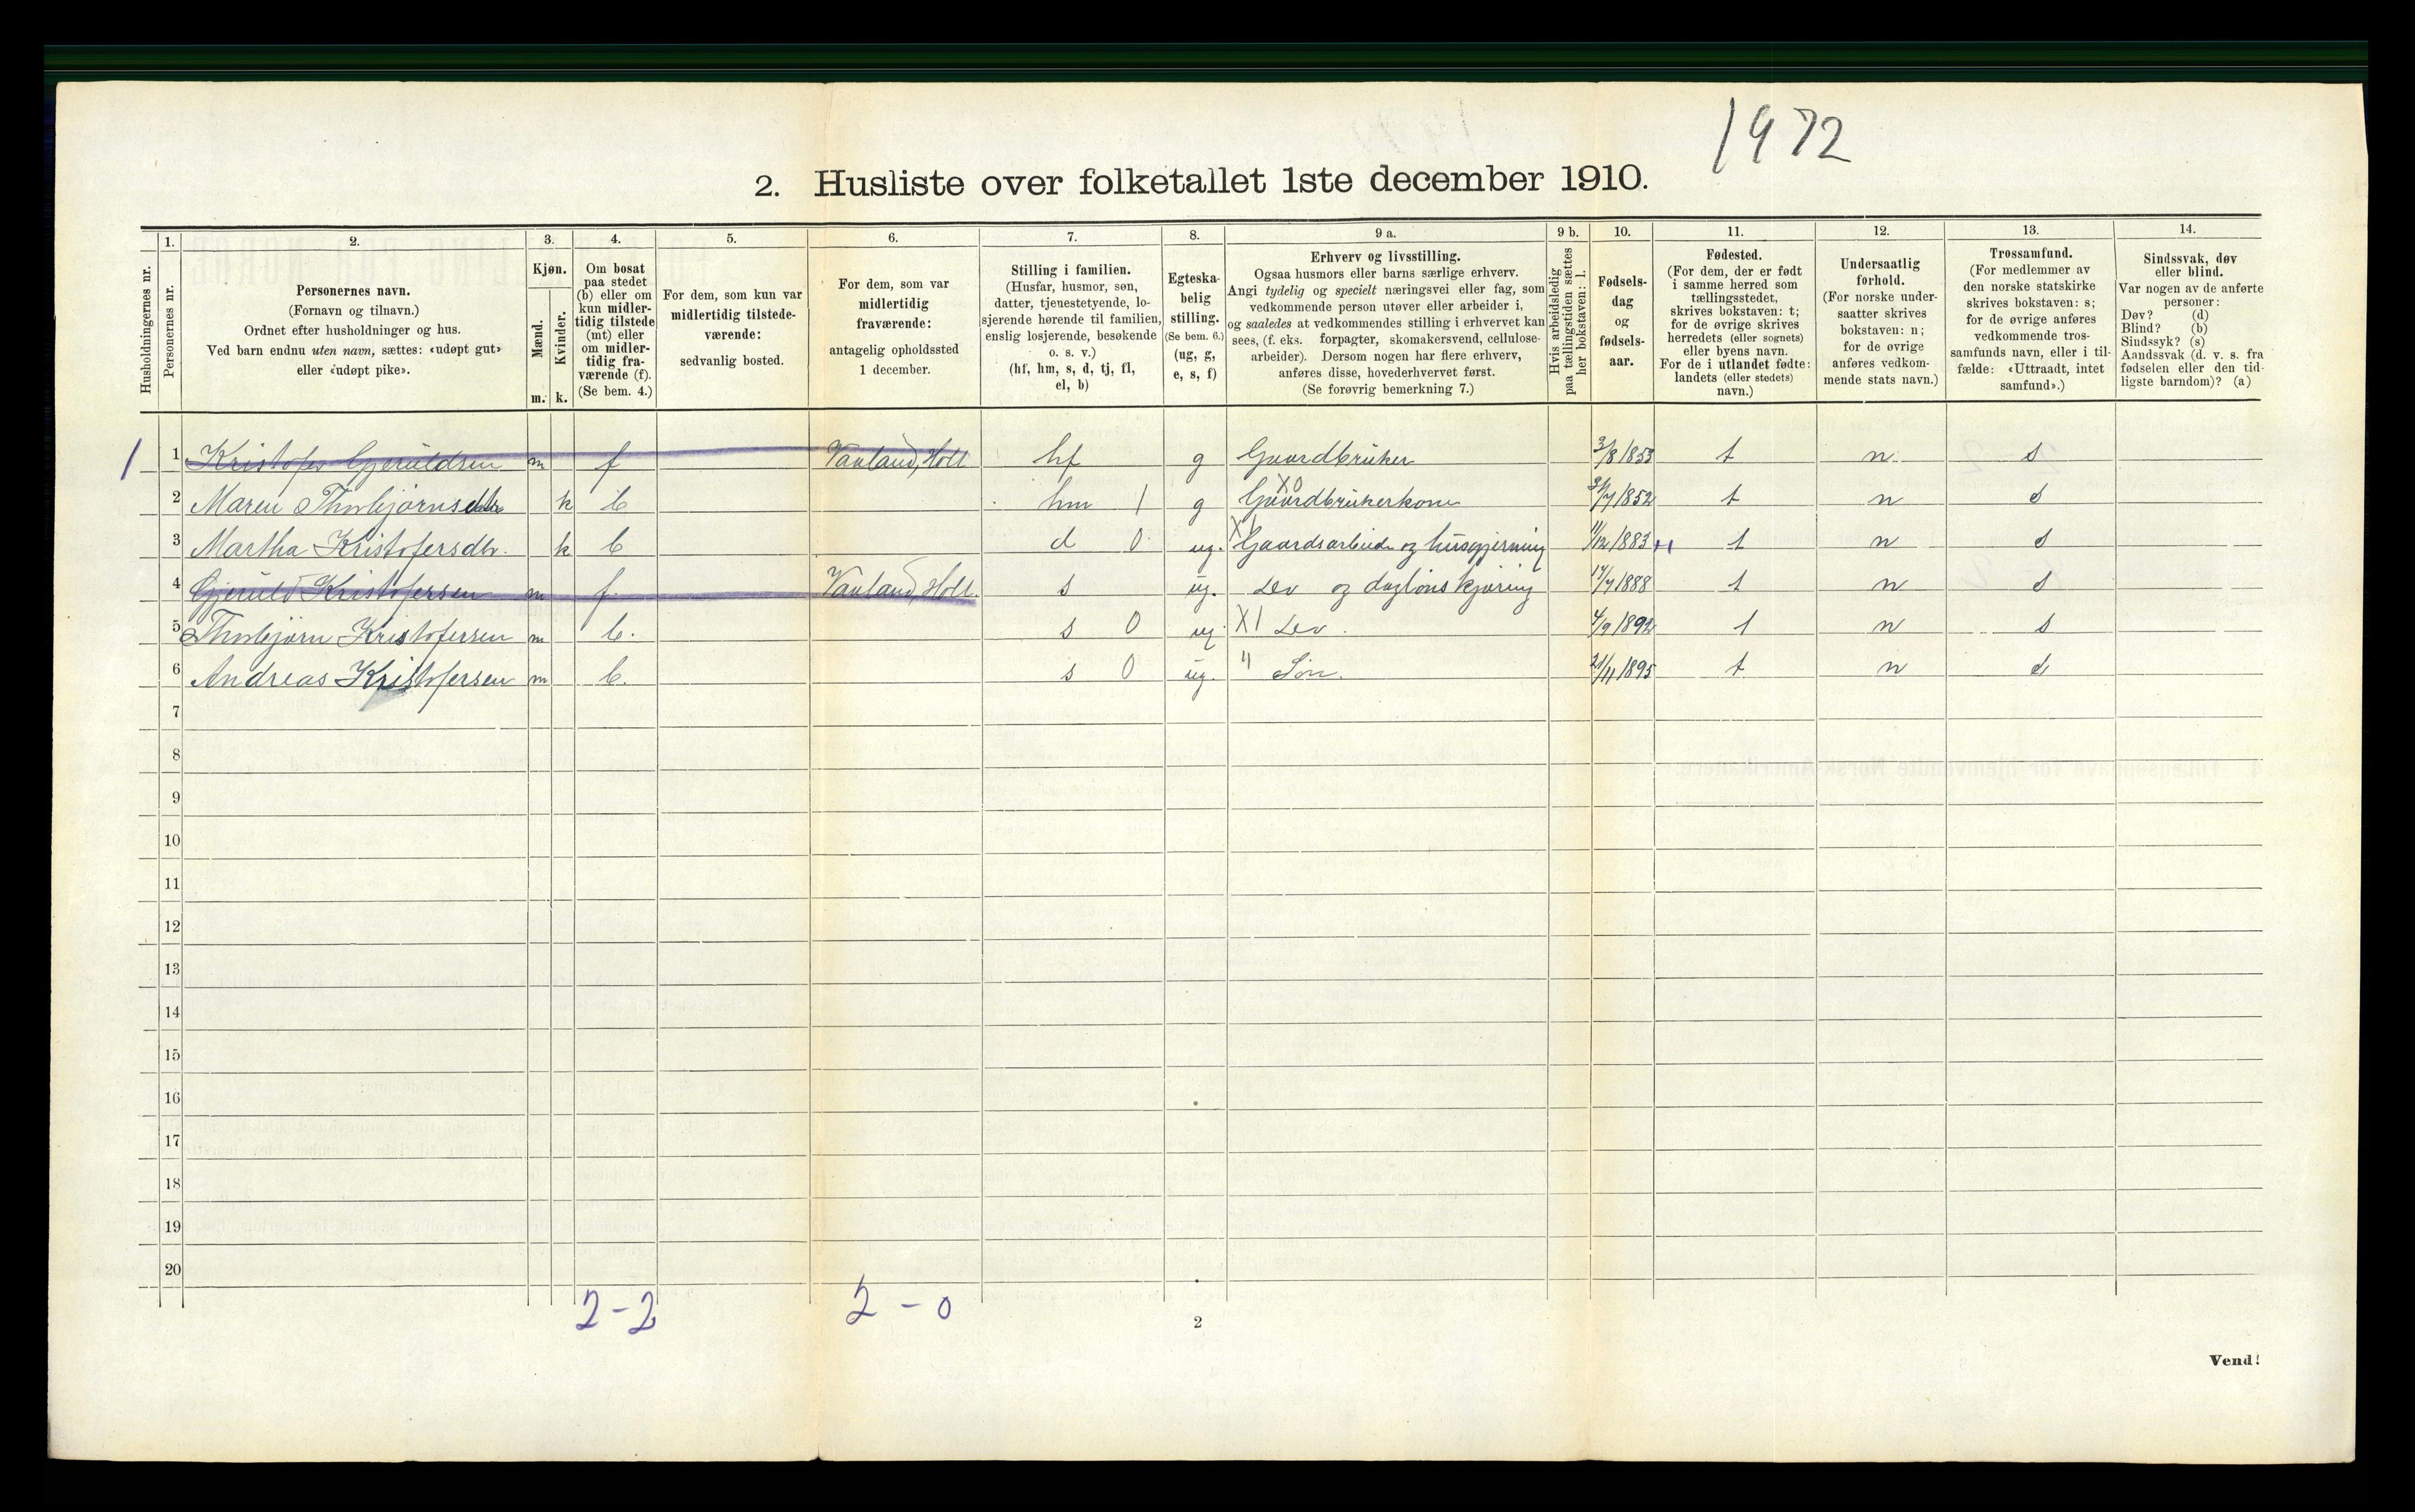 1972
2. Husliste over folketallet 1ste december 1910.
Husholdningernes nr.
1.
Personernes nr.
2.
Personernes navn.
(Fornavn og tilnavn.)
Ordnet efter husholdninger og hus.
Ved barn endnu uten navn, sættes: «udøpt gut»
eller «udøpt pike».
3.
Kjøn.
Mænd.
Kvinder.
m. k.
4.
Om bosat
paa stedet
(b) eller om
kun midler-
tidig tilstede
(mt) eller
om midler-
tidig fra-
værende (f).
(Se bem. 4.)
5.
For dem, som kun var
midlertidig tilstede-
værende:
sedvanlig bosted.
6.
For dem, som var
midlertidig
fraværende:
antagelig opholdssted
1 december.
7.
Stilling i familien.
(Husfar, husmor, søn,
datter, tjenestetyende, lo-
sjerende hørende til familien,
enslig losjerende, besøkende
o. s. v.)
(hf, hm, s, d, tj, fl,
el, b)
8.
Egteska-
belig
stilling.
(Se bem. 6.)
(ug, g,
e, s, f)
9 a.
Erhverv og livsstilling.
Ogsaa husmors eller barns særlige erhverv.
Angi tydelig og specielt næringsvei eller fag, som
vedkommende person utøver eller arbeider i,
og saaledes at vedkommendes stilling i erhvervet kan
sees, (f. eks. forpagter, skomakersvend, cellulose-
arbeider). Dersom nogen har flere erhverv,
anføres disse, hovederhvervet først.
(Se forøvrig bemerkning 7.)
9 b.
Hvis arbeidsledig
paa tællingstiden sættes
her bokstaven: l.
10.
Fødsels-
dag
og
fødsels-
aar.
11.
Fødested.
(For dem, der er født
i samme herred som
tællingsstedet,
skrives bokstaven: t;
for de øvrige skrives
herredets (eller sognets)
eller byens navn.
For de i utlandet fødte:
landets (eller stedets)
navn.)
12.
Undersaatlig
forhold.
(For norske under-
saatter skrives
bokstaven: n;
for de øvrige
anføres vedkom-
mende stats navn.)
13.
Trossamfund.
(For medlemmer av
den norske statskirke
skrives bokstaven: s;
for de øvrige anføres
vedkommende tros-
samfunds navn, eller i til-
fælde: «Uttraadt, intet
samfund».)
14.
Sindssvak, døv
eller blind.
Var nogen av de anførte
personer:
Døv? (d)
Blind? (b)
Sindssyk? (s)
Aandssvak (d. v. s. fra
fødselen eller den tid-
ligste barndom)? (a)
1 1 Kristofer Gjeruldsen m f Vauland, Holt hf g Gaardbruker 3/8 1853 t n s
2 Maren Thorbjørnsdtr k b hm 1 g X0 Gaardbrukerkone 1852 t n s
3 Martha Kristofersdtr. k b d 0 ug. X1 Gaardsarbeide og husgjerning 11/12 1883 t n s
4 Gjeruld Kristofersen m f. Vauland, Holt. s ug. og daglønskjøring 17/7 1888 t n s
5 Thorbjørn Kristofersen m b. s 0 ug. X1 4/9 1892 t n s
6 Andreas Kristofersen m b. s 0 ug. " Søn. 21/11 1895 t n s
7
8
9
10
11
12
13
14
15
16
17
18
19
20
2-2 2-0
2
Vend!